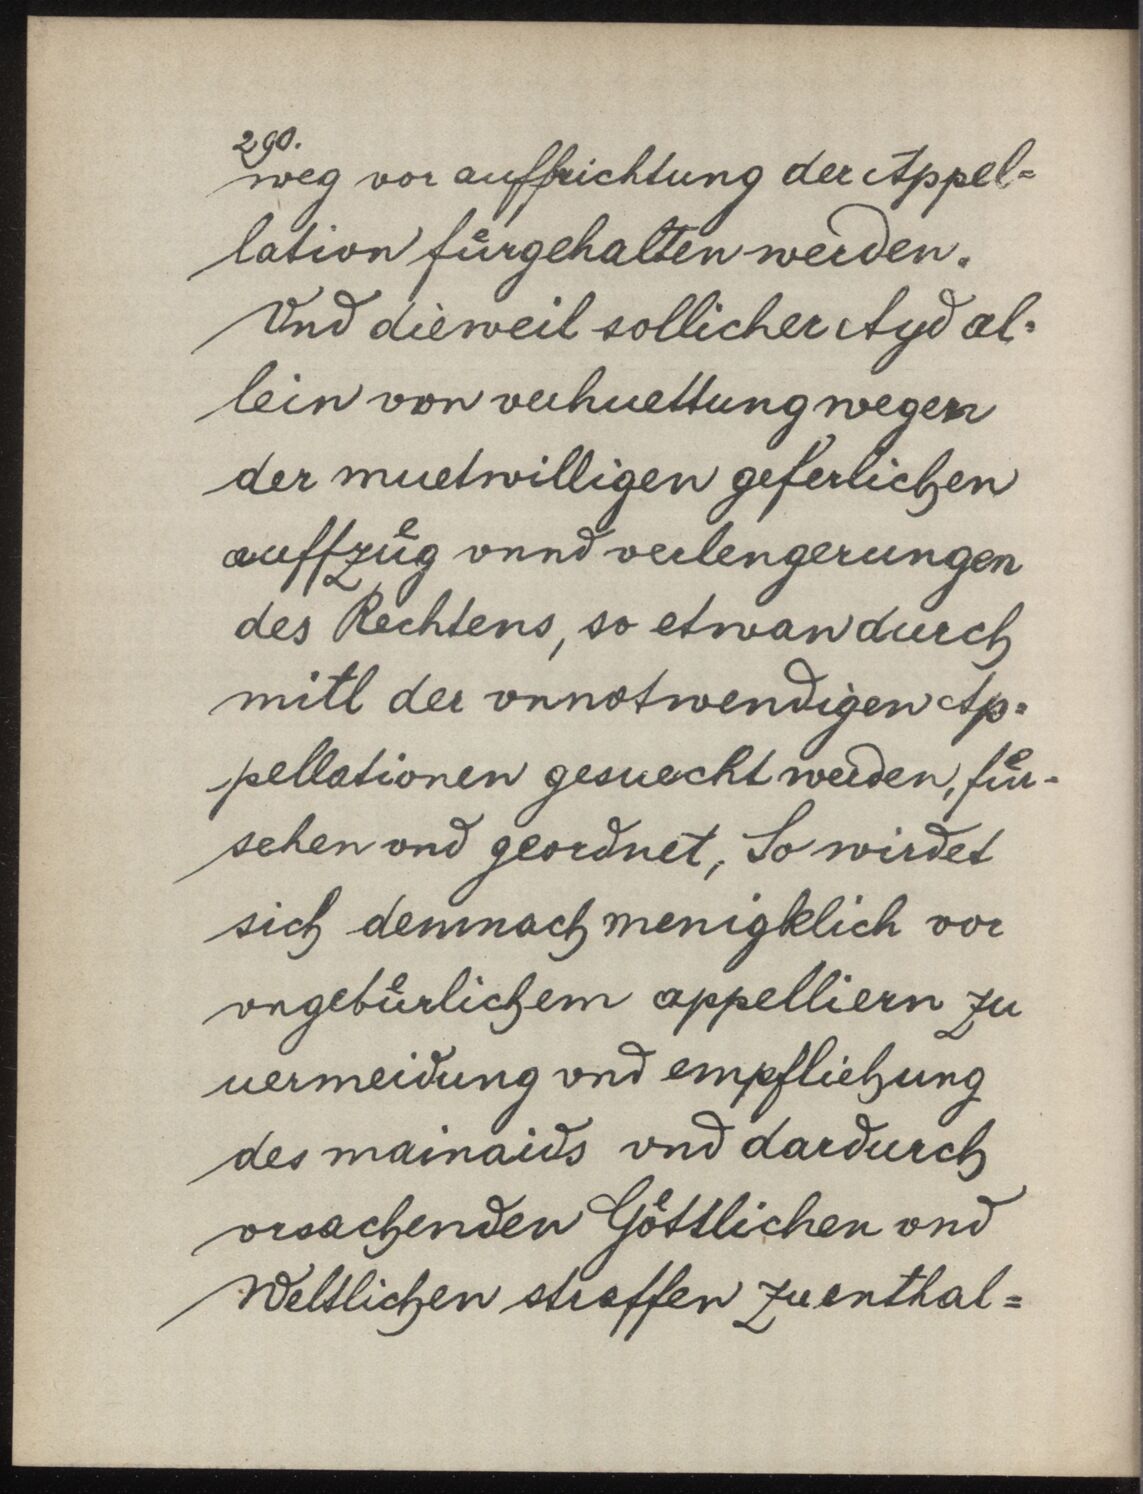 290.
weg vor auffrichtung der Appel=
lation fuͤrgehalten werden.
Vnd dieweil sollicher Ayd al=
lein von verhuettung wegen
der muetwilligen geferlichen
auffzuͤg vnnd verlengerungen
des Rechtens, so etwan durch
mitl der vnnotwendigen Ap=
pellationen gesuecht werden, fuͤr=
sehen vnd geordnet, So wirdet
sich demnach menigklich vor
vngebuͤrlichem appelliern zu
uermeidung vnd empfliehung
des mainaids vnd dardurch
vrsachenden Goͤttlichen vnd
Weltlichen straffen zuenthal=